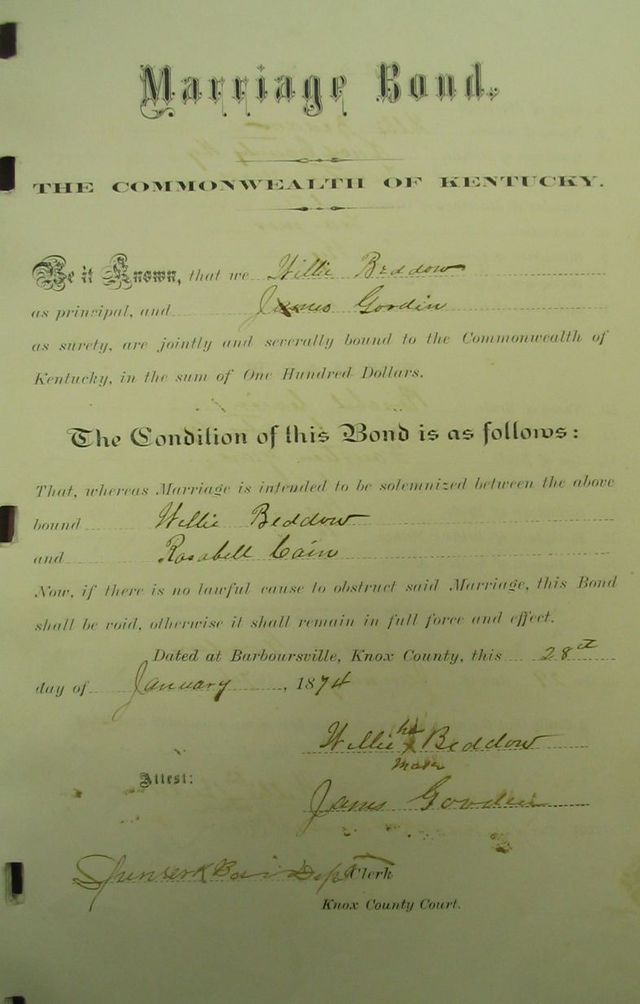 Marriage Bond.
THE COMMONWEALTH OF KENTUCKY.
Be it Known, that we Willie Beddow
as principal, and James Goodin
as surety, are jointly and severally bound to the Commonwealth of
Kentucky, in the sum of One Hundred Dollars.
The Condition of this Bond is as follows:
That, whereas Marriage is intended to be solemnized between the above
bound Willie Beddow
and Rosabell Cain
Now, if there is no lawful cause to obstruct said Marriage, this Bond
shall be void, otherwise it shall remain in full force and effect.
Dated at Barboursville, Knox County, this 28th
day of January, 1874
his
Willie X Beddow
mark
Attest:
James Goodin
Dept Clerk
Knox County Court.